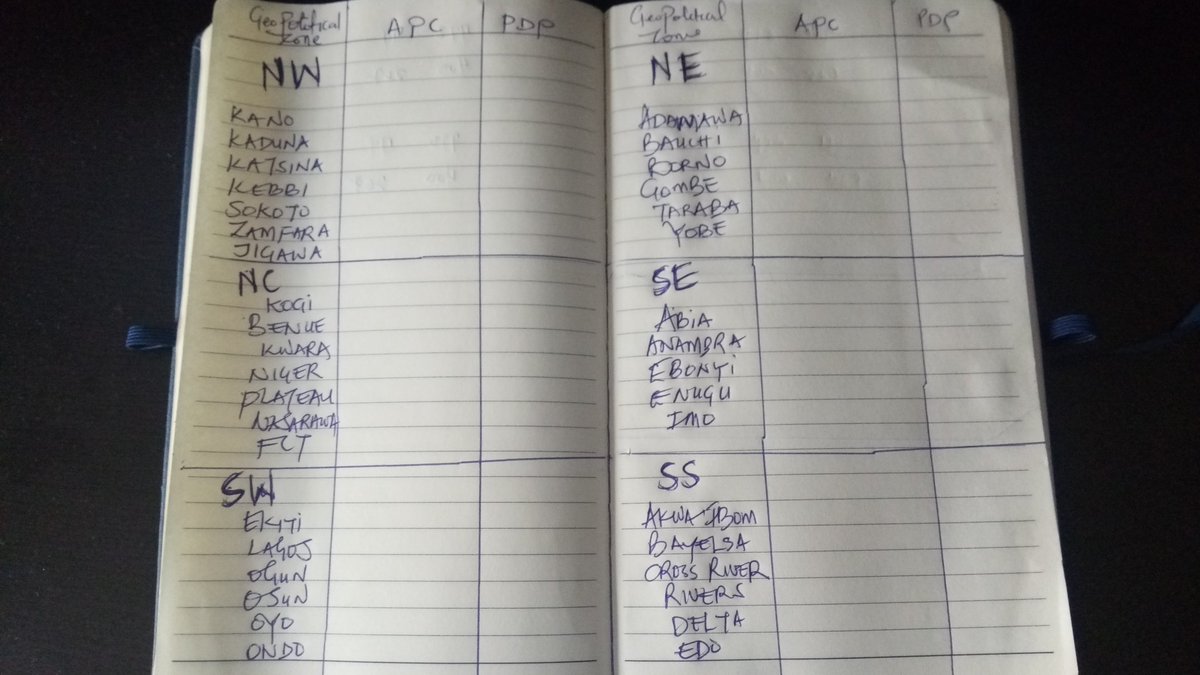 GeoPolitical Zone APC PDP
NW
KANO
KADUNA
KATSINA
KEBBI
SOKOTO
ZAMFARA
JIGAWA
NC
KOGI
BENUE
KWARA
NIGER
PLATEAU
NASARAWA
FCT
SW
EKITI
LAGOS
OGUN
OSUN
OYO
ONDO
GeoPolitical Zone APC PDP
NE
ADAMAWA
BAUCHI
BORNO
GOMBE
TARABA
YOBE
SE
ABIA
ANAMBRA
EBONYI
ENUGU
IMO
SS
AKWA IBOM
BAYELSA
CROSS RIVER
RIVERS
DELTA
EDO